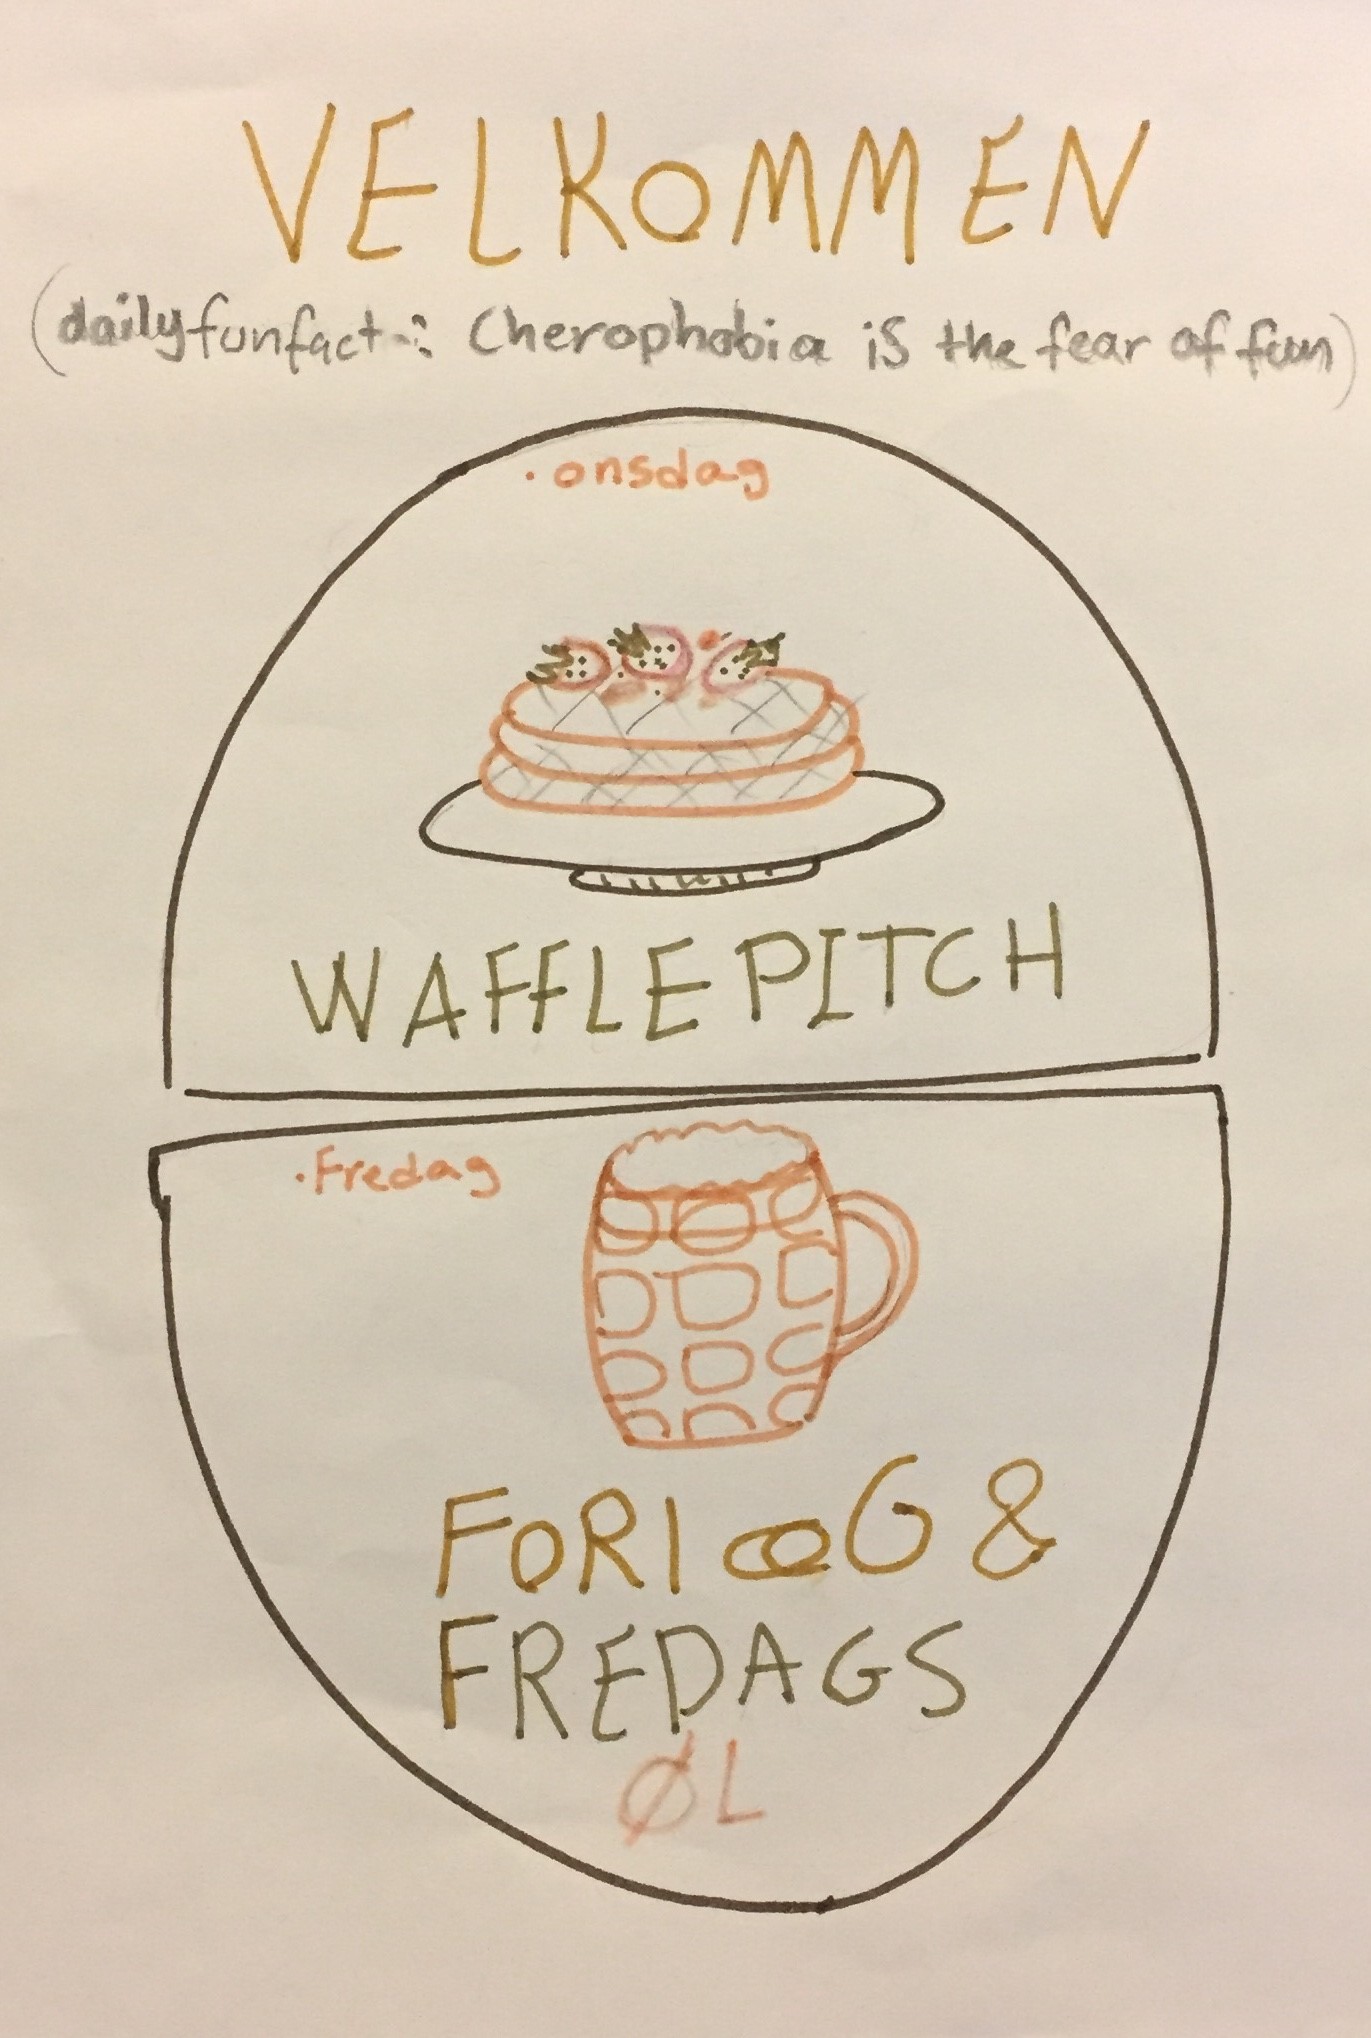 VELKOMMEN
(daily funfact: Cherophobia is the fear of fun)
·onsdag
WAFFLE PITCH
·Fredag
&
FREDAGS
ØL